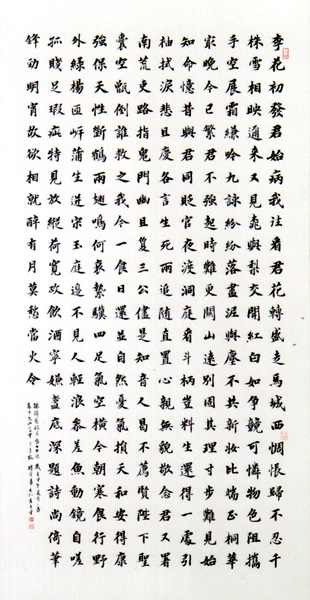 李花初發君始病我往看君花轉盛走馬城西惆悵歸不忍千
株雪相映迩来又見桃與梨交開紅白如争競可憐物色阻攜
手空展霜縑吟九詠紛紛落盡泥與塵不共新妝比端正桐華
最晚今已繁君不強起時難更關山遠別固其理寸步難見始
知命憶昔與君同貶官夜渡洞庭看斗柄豈料生還得一處引
袖拭淚悲且慶各言生死兩追隨直置心親無貌敬念君又署
南荒吏路指鬼門幽且夐三公盡是知音人曷不薦賢陛下聖
囊空甑倒誰救之我今一食日還並自然憂氣損天和安得康
強保天性斷鶴兩翅鳴何哀縶驥四足氣空橫今朝寒食行野
外綠楊匝岸蒲生迸宋玉庭邊不見人輕浪參差魚動鏡自嗟
孤賤足瑕疵特見放縱荷寬政飲酒寧嫌盞底深題詩尚倚筆
鋒勁明宵故欲相就醉有月莫愁當火令